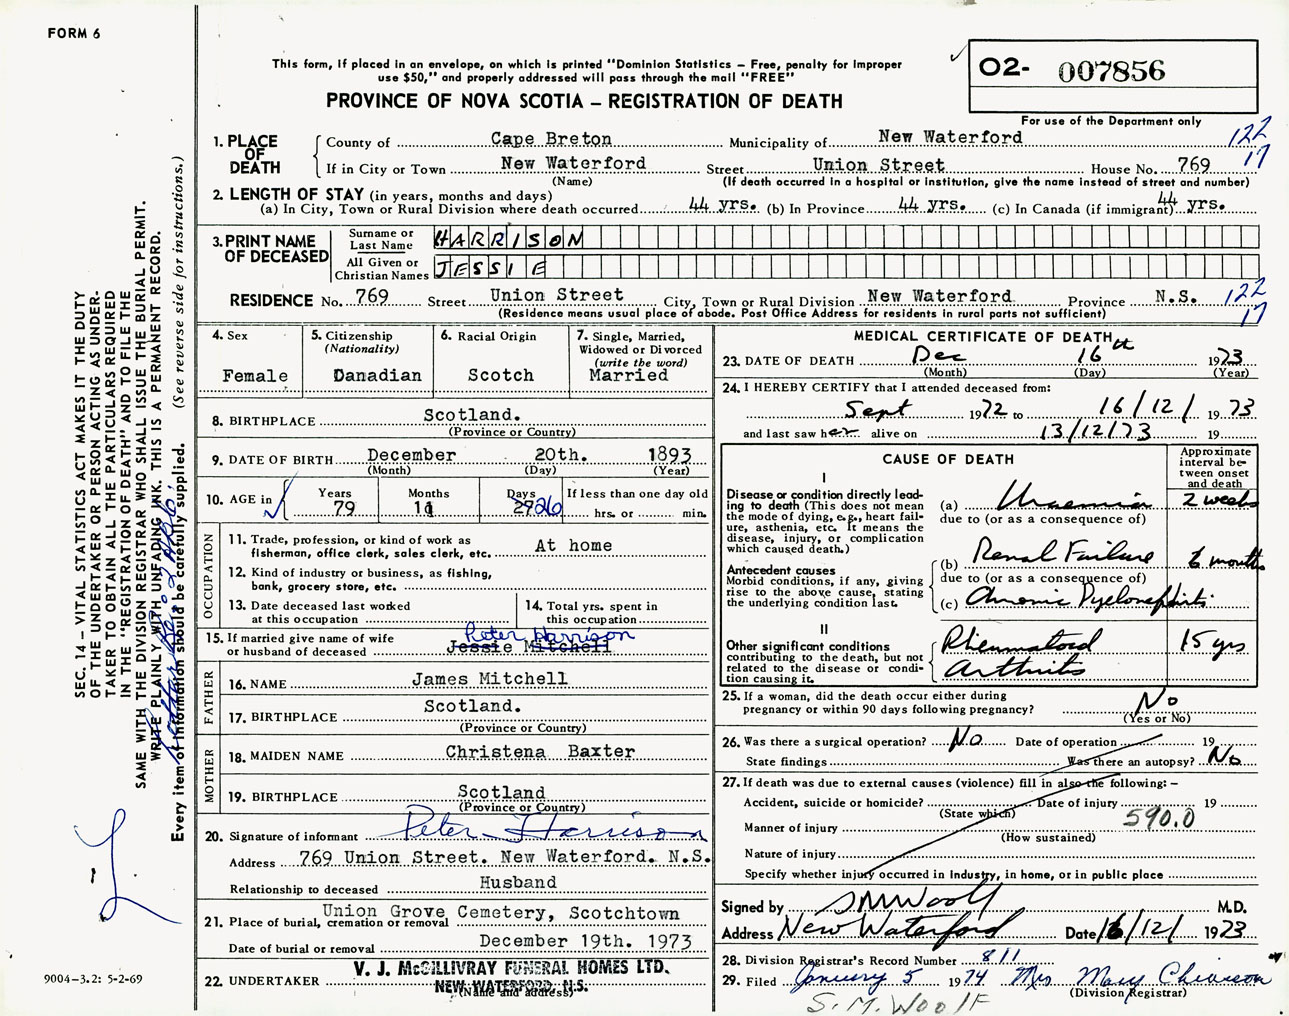 FORM 6
This form, if placed in an envelope, on which is printed "Dominion Statistics – Free, penalty for improper
use $50," and properly addressed will pass through the mail "FREE"
PROVINCE OF NOVA SCOTIA – REGISTRATION OF DEATH
02- 007856
For use of the Department only
1. PLACE OF DEATH County of Cape Breton Municipality of New Waterford 122
If in City or Town New Waterford Street Union Street House No. 769 17
(Name) (If death occurred in a hospital or institution, give the name instead of street and number)
2. LENGTH OF STAY (in years, months and days)
(a) In City, Town or Rural Division where death occurred 44 yrs. (b) In Province 44 yrs. (c) In Canada (if immigrant) 44 yrs.
3. PRINT NAME OF DECEASED
Surname or Last Name HARRISON
All Given or Christian Names JESSIE
RESIDENCE No. 769 Street Union Street City, Town or Rural Division New Waterford Province N.S. 122
(Residence means usual place of abode. Post Office Address for residents in rural parts not sufficient) 17
4. Sex
Female
5. Citizenship
(Nationality)
Danadian
6. Racial Origin
Scotch
7. Single, Married,
Widowed or Divorced
(write the word)
Married
8. BIRTHPLACE Scotland.
(Province or Country)
9. DATE OF BIRTH December 20th. 1893
(Month) (Day) (Year)
10. AGE in Years Months Days If less than one day old
79 11 26 hrs. or min.
OCCUPATION
11. Trade, profession, or kind of work as At home
fisherman, office clerk, sales clerk, etc.
12. Kind of industry or business, as fishing,
bank, grocery store, etc.
13. Date deceased last worked
at this occupation
14. Total yrs. spent in
this occupation
15. If married give name of wife Peter Harrison
or husband of deceased Jessie Mitchell
FATHER
16. NAME James Mitchell
17. BIRTHPLACE Scotland.
(Province or Country)
MOTHER
18. MAIDEN NAME Christena Baxter
19. BIRTHPLACE Scotland
(Province or Country)
20. Signature of informant Peter Harrison
Address 769 Union Street. New Waterford. N.S.
Relationship to deceased Husband
21. Place of burial, cremation or removal Union Grove Cemetery, Scotchtown
Date of burial or removal December 19th. 1973
22. UNDERTAKER V. J. McGILLIVRAY FUNERAL HOMES LTD.
NEW WATERFORD, N.S.
(Name and address)
MEDICAL CERTIFICATE OF DEATH
23. DATE OF DEATH Dec 16th 1973
(Month) (Day) (Year)
24. I HEREBY CERTIFY that I attended deceased from:
Sept 1972 to 16/12/ 1973
and last saw her alive on 13/12/73 19
CAUSE OF DEATH
Approximate
interval be-
tween onset
and death
I
Disease or condition directly lead-
ing to death (This does not mean
the mode of dying, e.g., heart fail-
ure, asthenia, etc. It means the
disease, injury, or complication
which caused death.)
(a) Uraemia 2 weeks
due to (or as a consequence of)
Antecedent causes
Morbid conditions, if any, giving
rise to the above cause, stating
the underlying condition last.
(b) Renal Failure 6 months
due to (or as a consequence of)
(c) Chronic Pyelonephritis
II
Other significant conditions
contributing to the death, but not
related to the disease or condi-
tion causing it.
Rheumatoid 15 yrs
Arthritis
25. If a woman, did the death occur either during
pregnancy or within 90 days following pregnancy? No
(Yes or No)
26. Was there a surgical operation? No Date of operation 19
State findings Was there an autopsy? No
27. If death was due to external causes (violence) fill in also the following: –
Accident, suicide or homicide? Date of injury 19
(State which)
Manner of injury 590.0
(How sustained)
Nature of injury
Specify whether injury occurred in industry, in home, or in public place
Signed by SMWoolf M.D.
Address New Waterford Date 16/12/ 1973
28. Division Registrar's Record Number 811
29. Filed January 5 1974 Mrs Mary Chiasson
(Division Registrar)
S.M. WOOLF
SEC. 14 – VITAL STATISTICS ACT MAKES IT THE DUTY
OF THE UNDERTAKER OR PERSON ACTING AS UNDER-
TAKER TO OBTAIN ALL THE PARTICULARS REQUIRED
IN THE "REGISTRATION OF DEATH" AND TO FILE THE
SAME WITH THE DIVISION REGISTRAR WHO SHALL ISSUE THE BURIAL PERMIT.
WRITE PLAINLY WITH UNFADING INK. THIS IS A PERMANENT RECORD.
Every item of information should be carefully supplied. (See reverse side for instructions.)
9004–3.2: 5-2-69